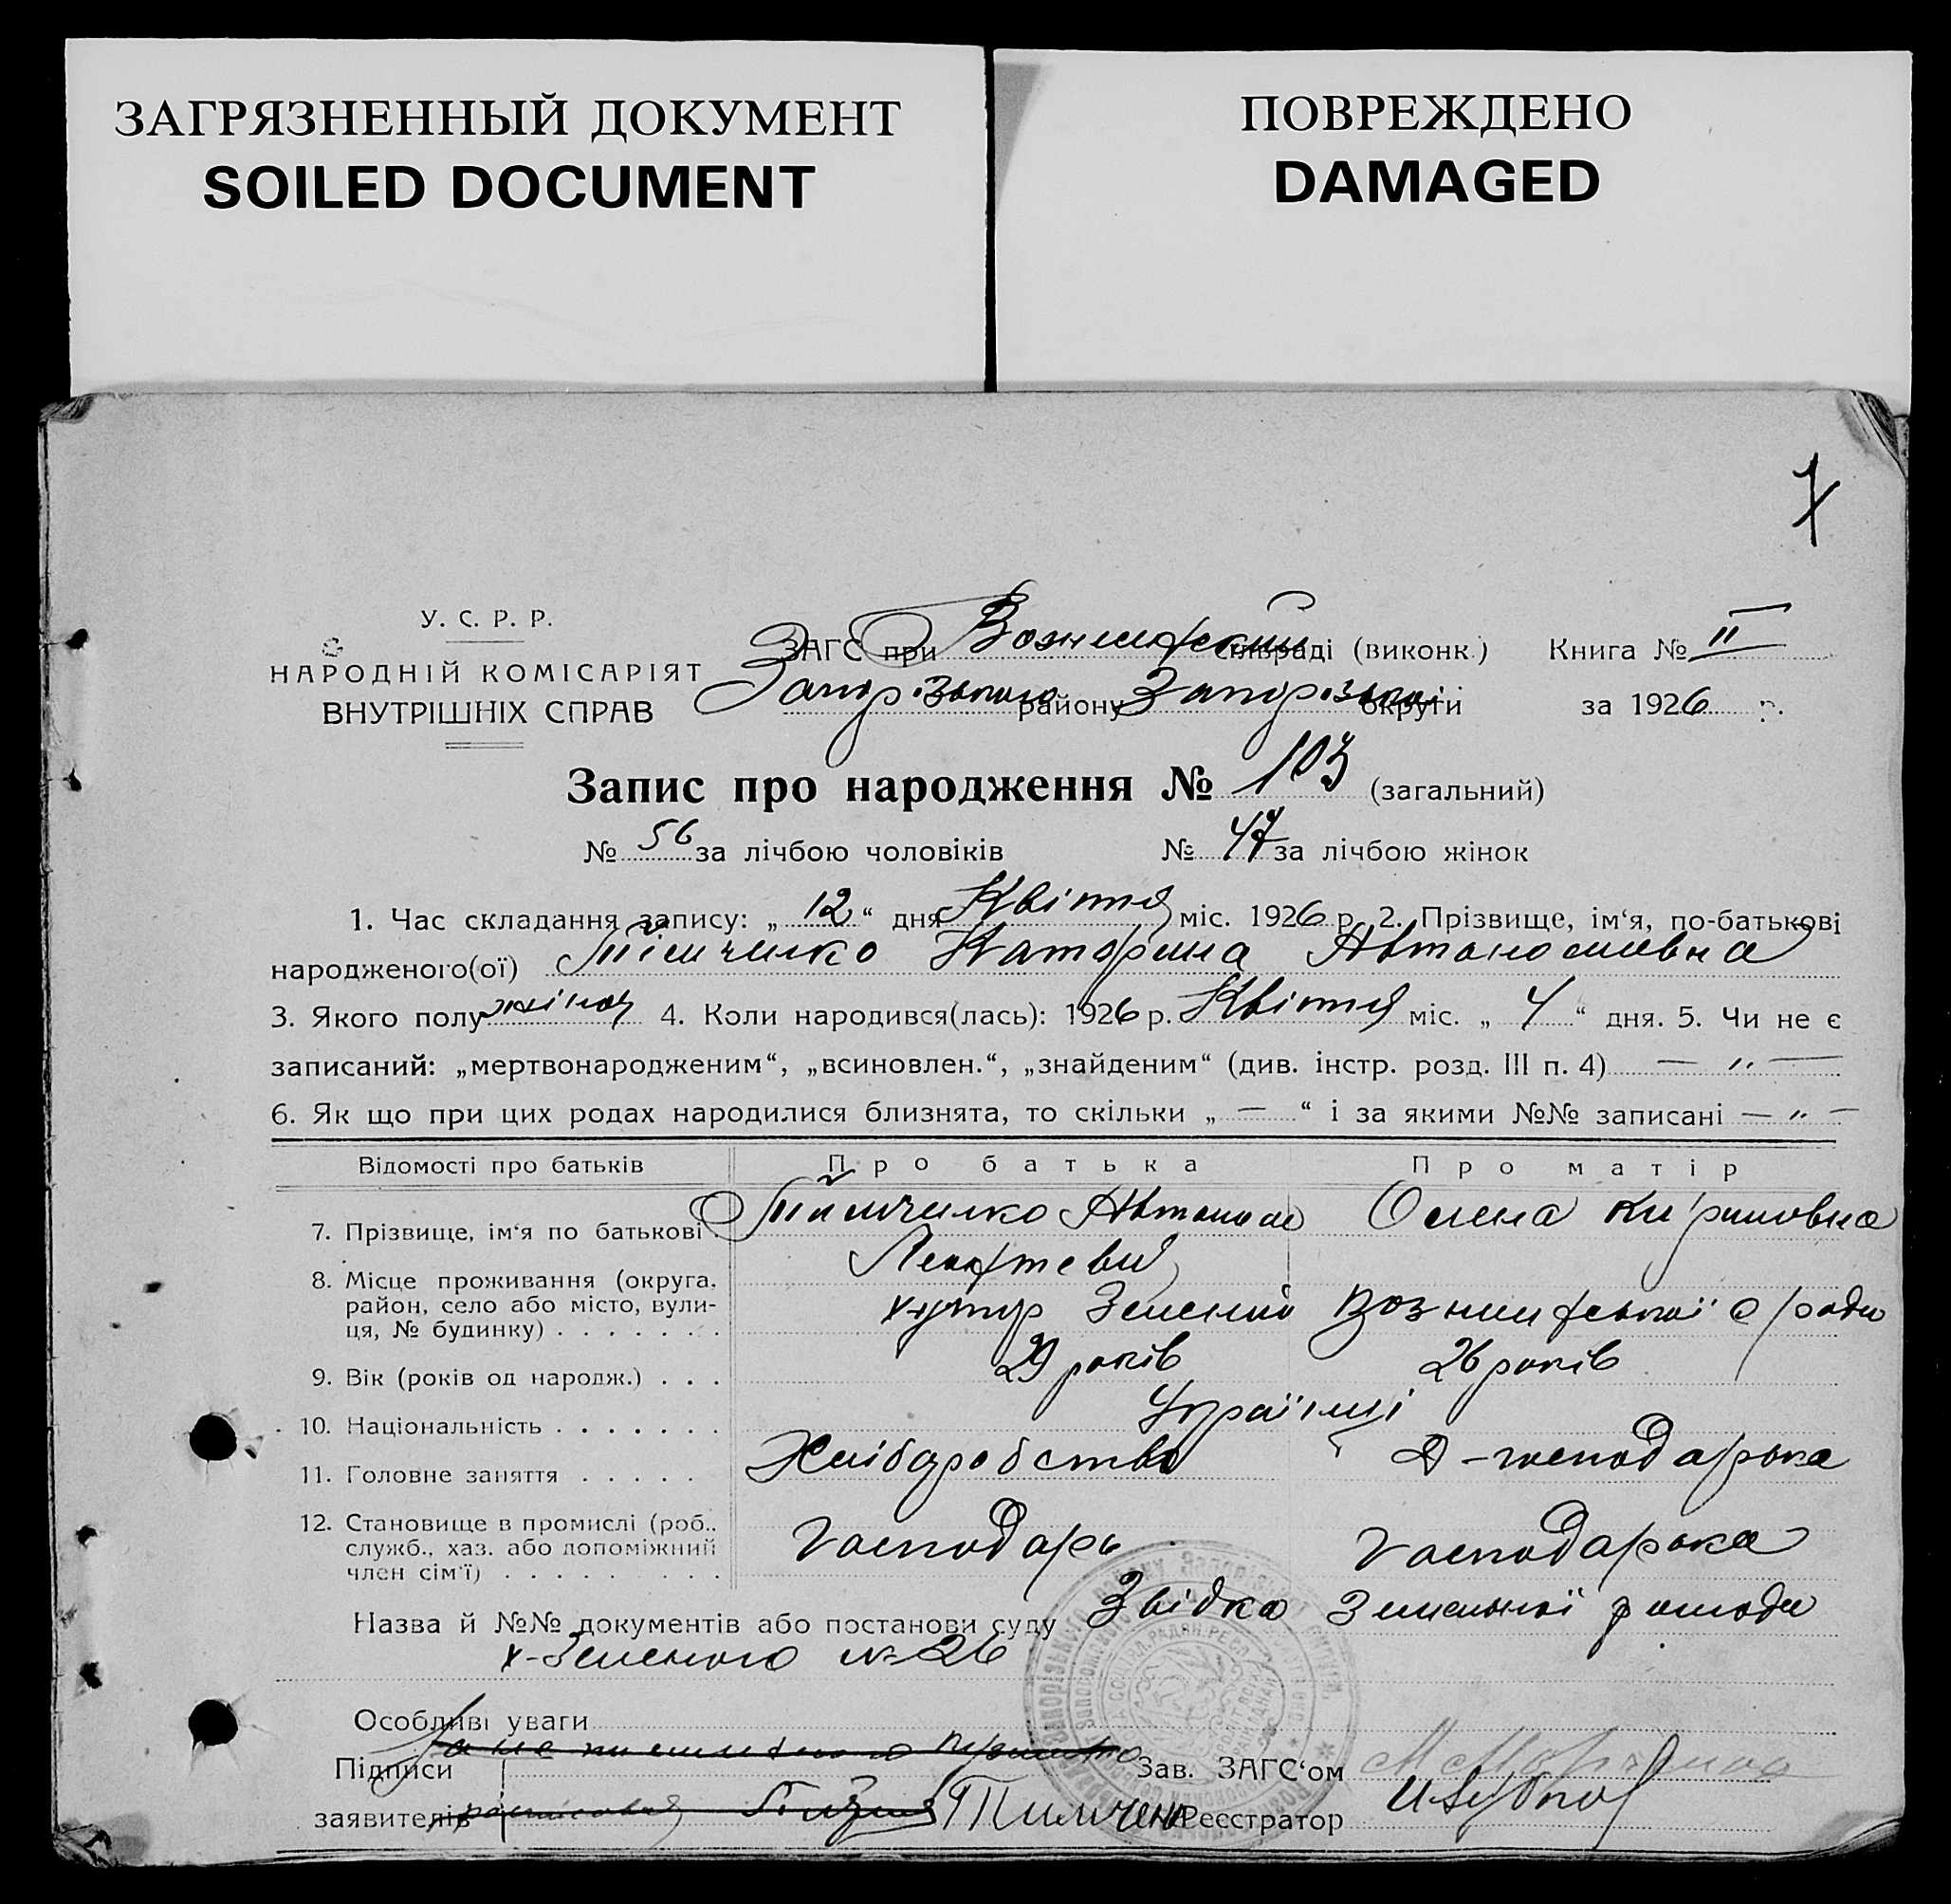 ЗАГРЯЗНЕННЫЙ ДОКУМЕНТ
SOILED DOCUMENT
ПОВРЕЖДЕНО
DAMAGED
7
У. С. Р. Р.
НАРОДНІЙ КОМІСАРІЯТ
ВНУТРІШНІХ СПРАВ
ЗАГС при сільраді (виконк.) Книга № II
району округи за 1926 р.
Запис про народження № 103 (загальний)
№ 56 за лічбою чоловіків № 47 за лічбою жінок
1. Час складання запису: „ 12 “ дня Квітня міс. 1926 р. 2. Прізвище, ім‘я, по-батькові
народженого(ої) Тімченко Катерина Автономовна
3. Якого полу жіноч 4. Коли народився(лась): 1926 р. Квітня міс. „ 4 “ дня. 5. Чи не є
записаний: „мертвонародженим“, „всиновлен.“, „знайденим“ (див. інстр. розд. III п. 4) — „ —
6. Як що при цих родах народилися близнята, то скільки „ — “ і за якими №№ записані — „ —
Відомості про батьків Про батька Про матір
7. Прізвище, ім‘я по батькові . Тимченко Автоном Олена
8. Місце проживання (округа, район, село або місто, вулиця, № будинку) . . . . . . . хутір Зелений с/ради
9. Вік (років од народж.) . . . 29 років 26 років
10. Національність . . . . . . . Українці
11. Головне заняття . . . . . Хліборобство Д-господарька
12. Становище в промислі (роб., служб., хаз. або допоміжний член сім‘ї) . . . . . . . . . Господарь Господарька
Назва й №№ документів або постанови суду Звідка Земельної громади
х-Зеленого № 26
Особливі уваги
Підписи Зав. ЗАГС‘ом
заявителів Тимченк Реєстратор